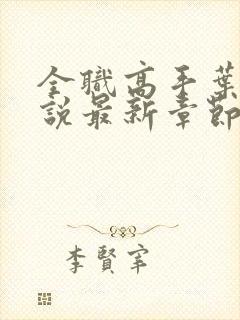 全職高手葉
說最新章節
李賢宰